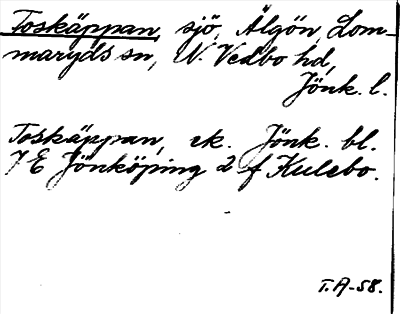 Toskäppan, sjö, Älgön, Lom-
maryds sn, N. Vedbo hd,
Jönk. l.
Toskäppan, ek. Jönk. bl.
7 E Jönköping 2 f Kulebo.
T.A-58.